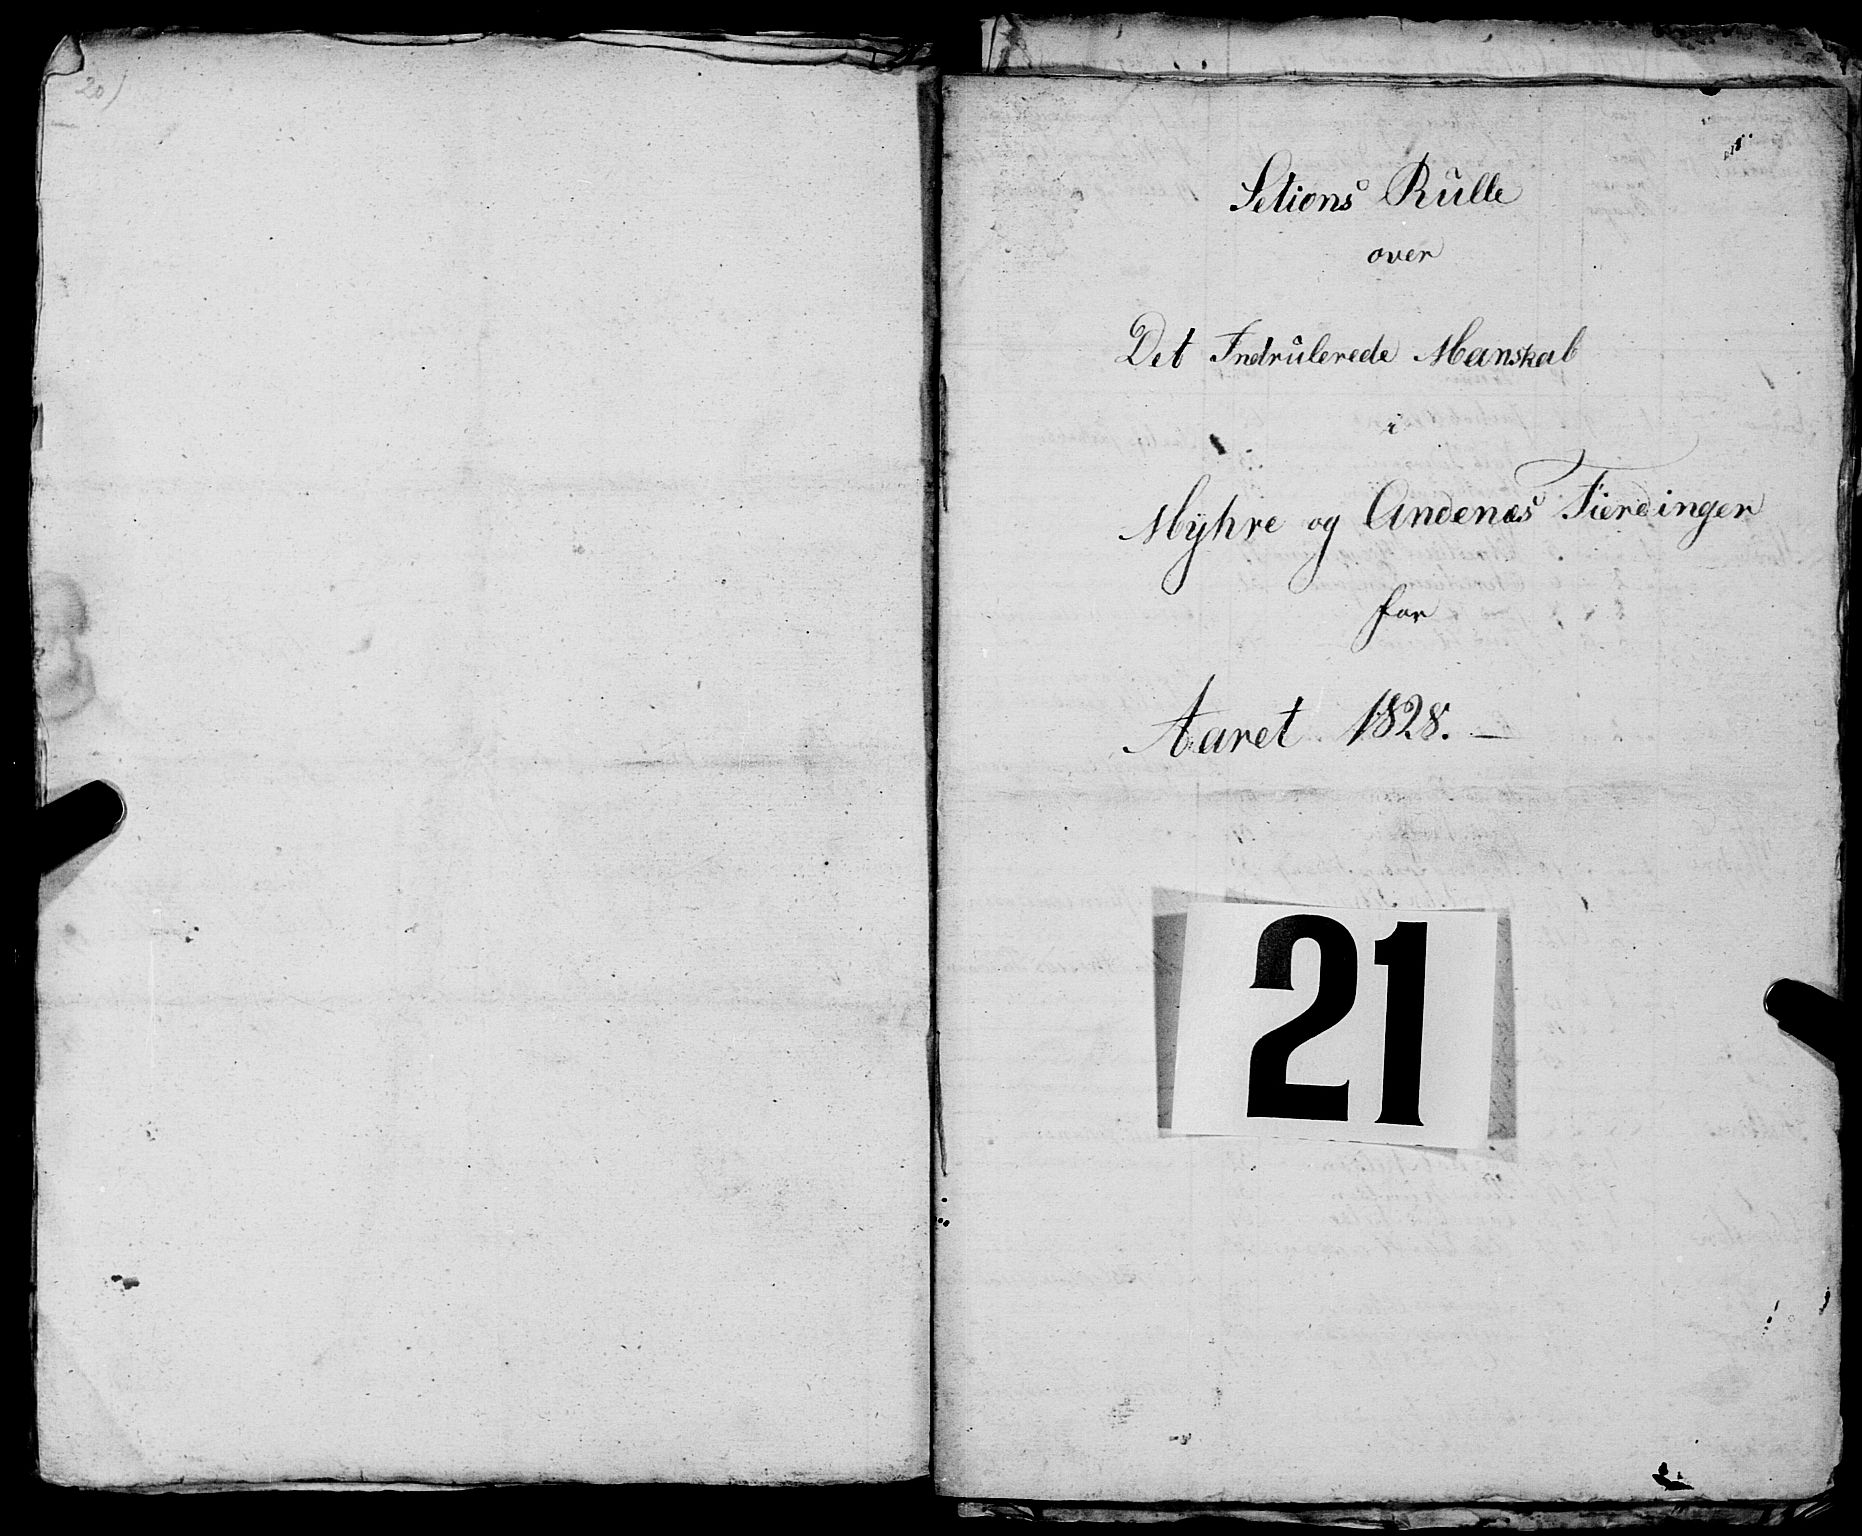 20)
Setions Rulle
over
Det Indrulerede Manskab
i
Myhre og Andenæs Fierdinger
for
Aaret 1828. —
21